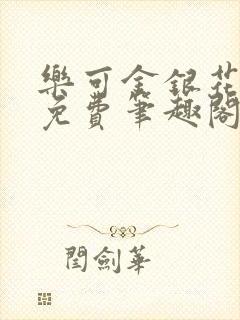 樂可金銀花
免費筆趣閣
閆劍華